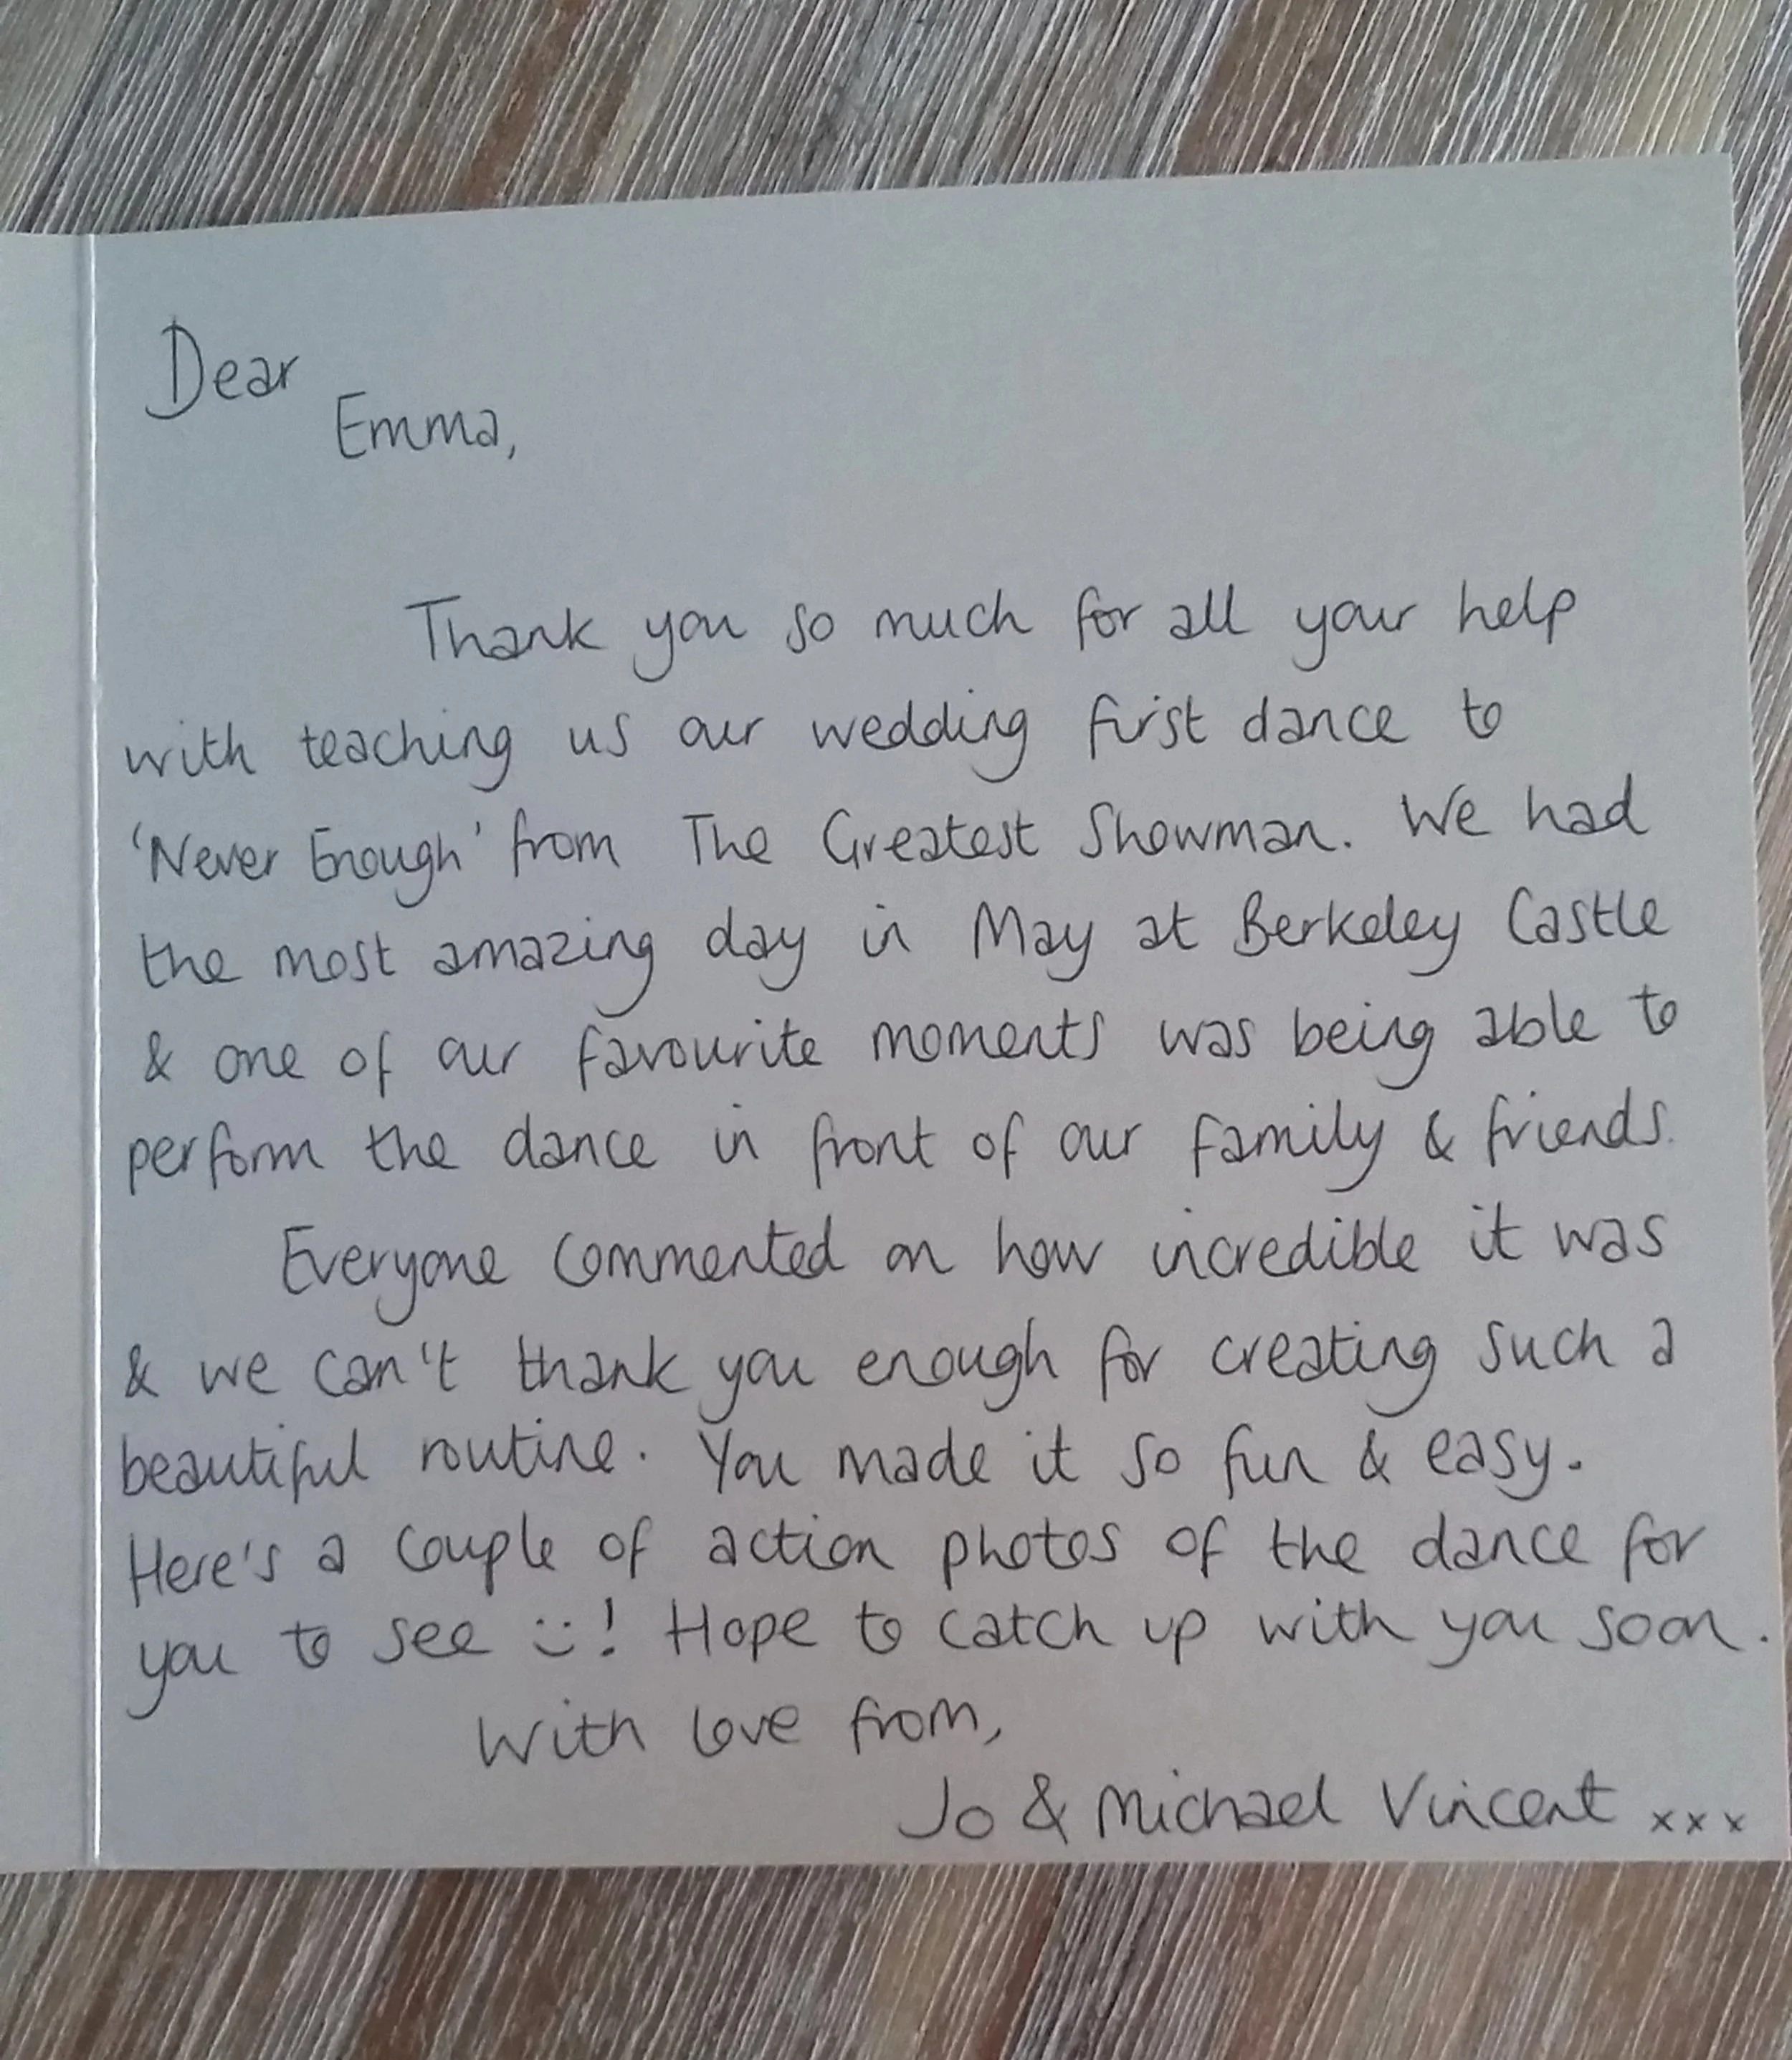 Dear
Emma,
Thank you so much for all your help
with teaching us our wedding first dance to
'Never Enough' from The Greatest Showman. We had
the most amazing day in May at Berkeley Castle
& one of our favourite moments was being able to
perform the dance in front of our family & friends.
Everyone commented on how incredible it was
& we can't thank you enough for creating such a
beautiful routine. You made it so fun & easy.
Here's a couple of action photos of the dance for
you to see :)! Hope to catch up with you soon.
With love from,
Jo & Michael Vincent xxx